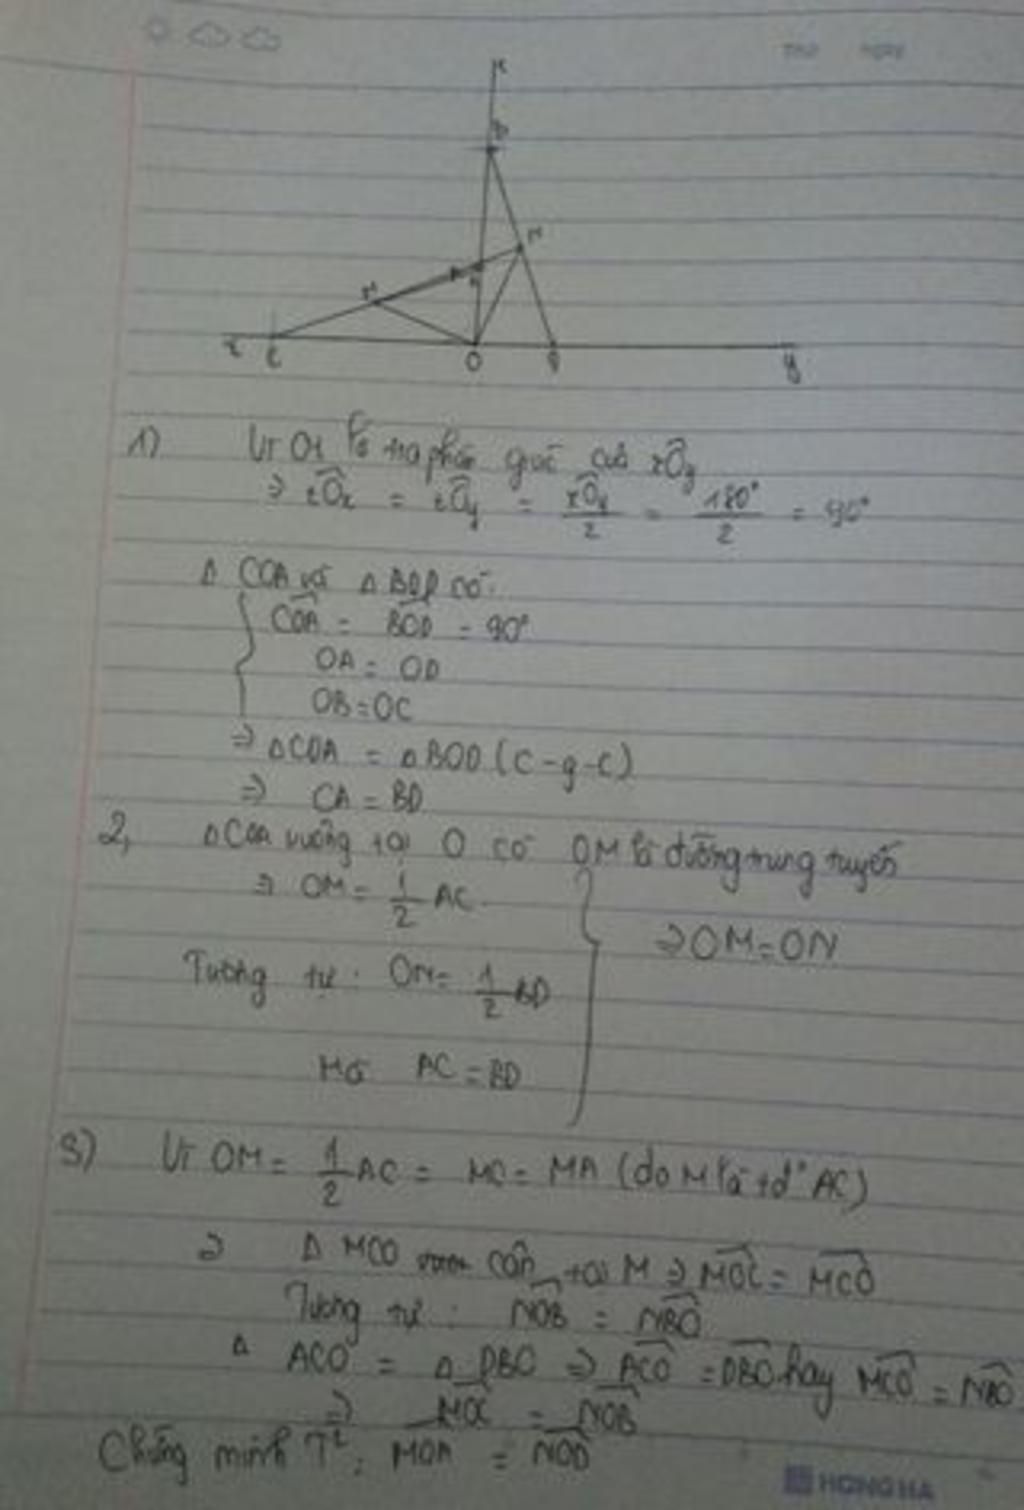 t
B
N
A
M
x C O D y
1) Vì Ot là tia phân giác của xÔy
⇒ tÔx = tÔy = xÔy/2 = 180°/2 = 90°
Δ COA và Δ BOD có:
COA = BOD = 90°
OA = OD
OB = OC
⇒ ΔCOA = ΔBOD (c-g-c)
⇒ CA = BD
2, ΔCOA vuông tại O có OM là đường trung tuyến
⇒ OM = 1/2 AC
⇒ OM = ON
Tương tự: ON = 1/2 BD
Mà AC = BD
3) Vì OM = 1/2 AC = MC = MA (do M là tđ° AC)
⇒ Δ MCO cân tại M ⇒ MOC = MCO
Tương tự: NOB = NBO
Δ ACO = Δ DBO ⇒ ACO = DBO hay MCO = NBO
⇒ MOC = NOB
Chứng minh T²: MOA = NOD
HONG HA